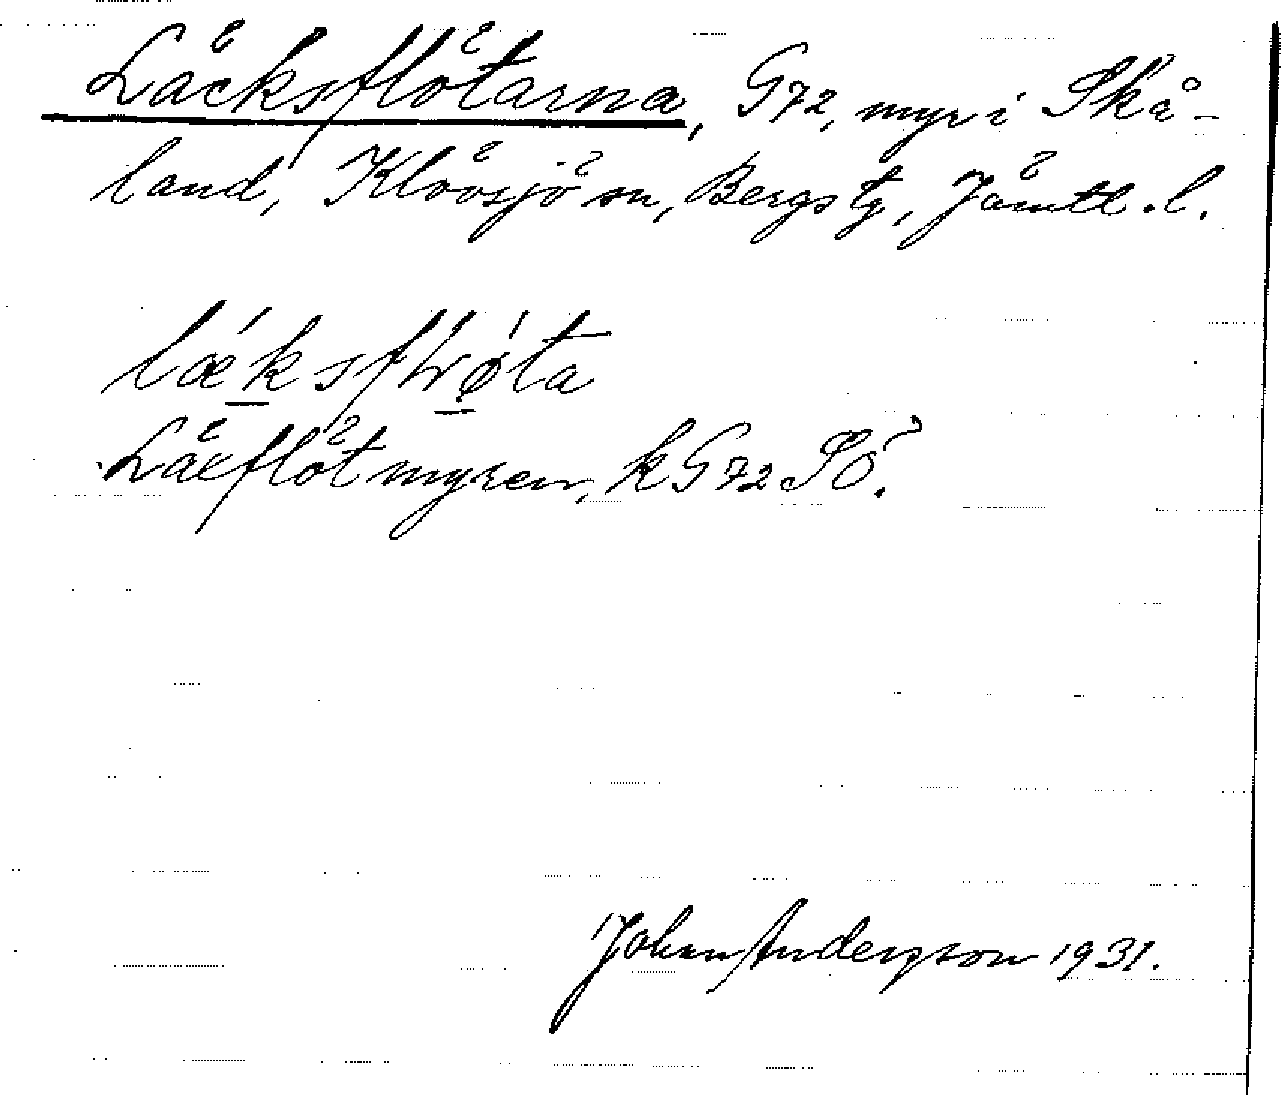 Läcksflötarna, G72, myr i Skå-
land, Klövsjö sn, Bergs tg, Jämtl. l.
læ´ksflø´ta
Läxflötmyren, k G72 SÖ.
Johan Andersson 1931.